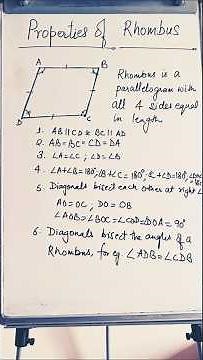 Properties of Rhombus
A B
D C
Rhombus is a
parallelogram with
all 4 sides equal
in length
1. AB || CD & BC || AD
2. AB = BC = CD = DA
3. ∠A = ∠C, ∠D = ∠B
4. ∠A+∠B = 180°, ∠B+∠C = 180°, ∠C+∠D = 180°,
5. Diagonals bisect each other at right ∠
AO = OC, DO = OB
∠AOB = ∠BOC = ∠COD = ∠DOA = 90°
6. Diagonals bisect the angles of a
Rhombus, for eg. ∠ADB = ∠CDB